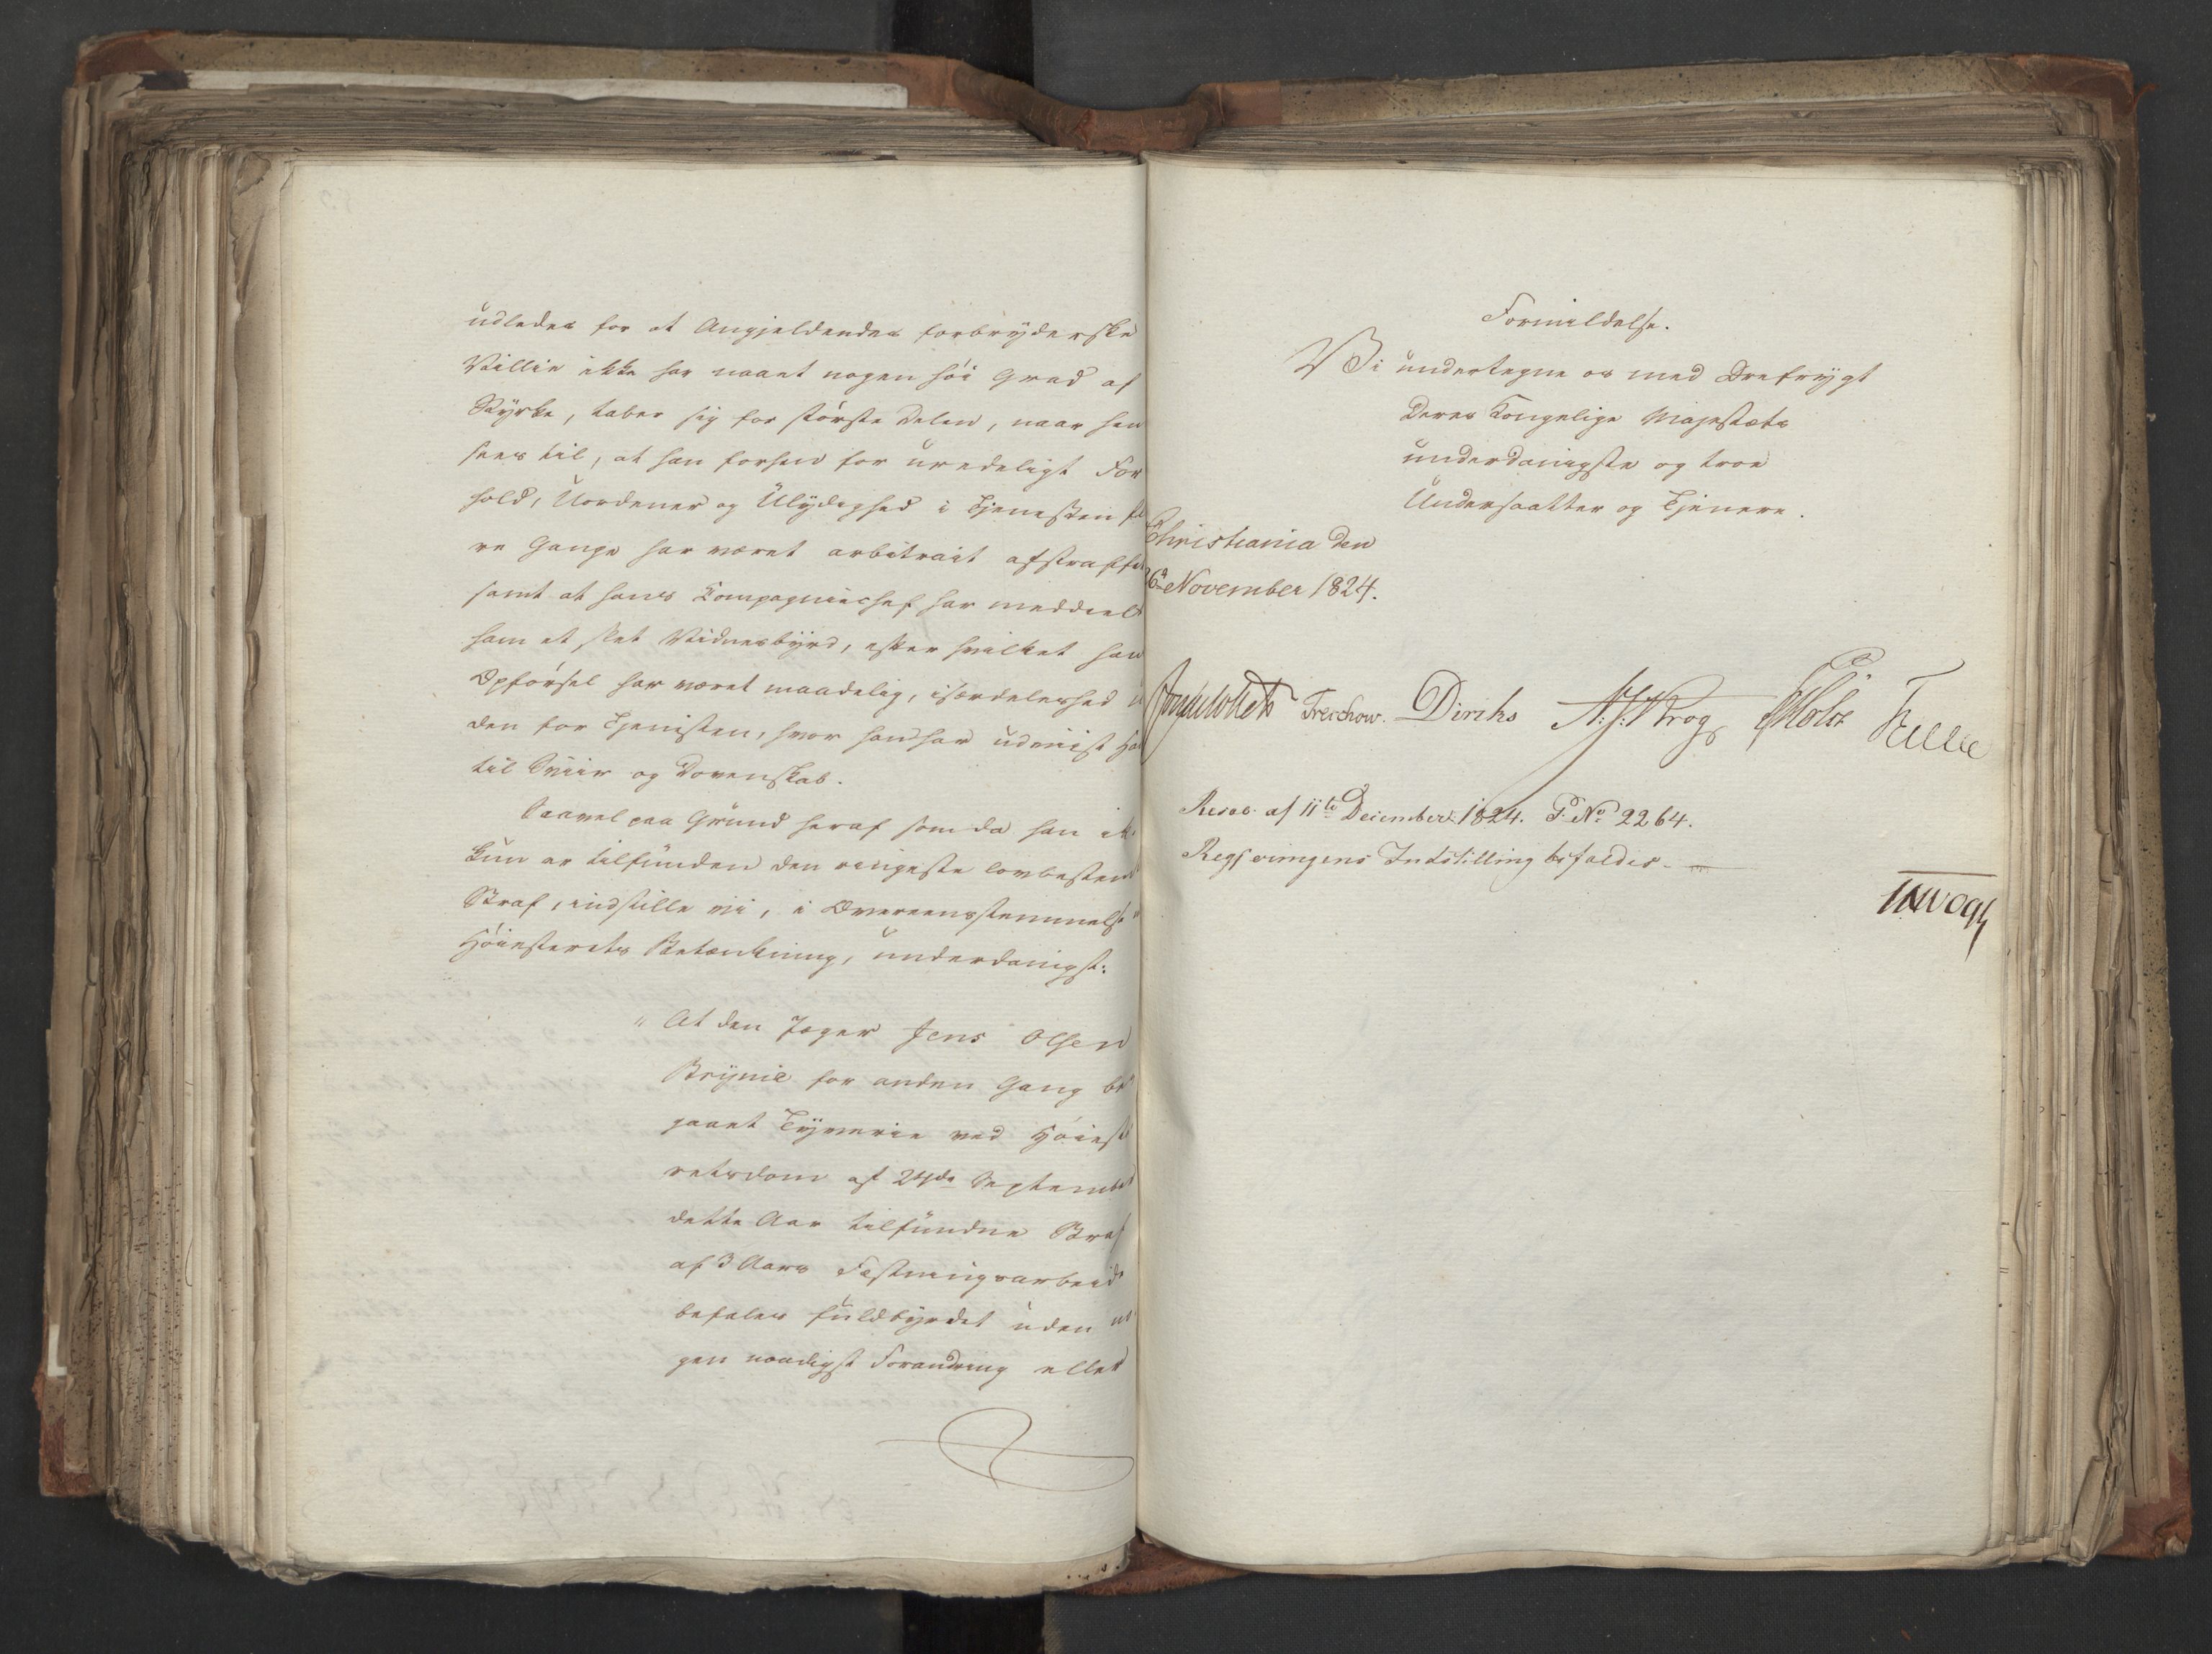 udledes for at Angjeldendes forbryderske
Villie ikke har naaet nogen høi Grad af
Styrke, taber sig for største Delen, naar hen
sees til, at han forhen for uredeligt For
hold, Uordener og Ulydighed i Tjenesten fle
re Gange har været arbitrairt afstraffet
samt at hans Compagniechef har meddeelt
ham et slet Vidnesbyrd, efter hvilket hans
Opførsel har været maadelig, isærdeleshed u
den for Tjenesten, hvor han har udviist Hang
til Sviir og Dovenskab.
Saavel paa Grund heraf som da han ikke
kun er tilfunden den ringeste lovbestemte
Straf, indstille vi, i Overeensstemmelse
Høiesterets Betænkning, underdanigst:
" At den Jæger Jens Olsen
Brynie for anden Gang be
gaaet Tyverie ved Høieste
retsdom af 24de September
dette Aar tilfundne Straf
af 3 Aars Fæstningsarbeide
befales fuldbyrdet uden no
gen naadigst Forandring eller
Formildelse.
Vi undertegne os med Ærefrygt
Deres Kongelige Majestæts
underdanigste og troe
Undersaatter og Tjenere.
Christiania den
26de November 1824.
Treschow. Diriks A. J. Krog Holst Fasting
Resol. af 11te December 1824. P. No 2264.
Regjeringens Indstilling bifaldes.
Vogt